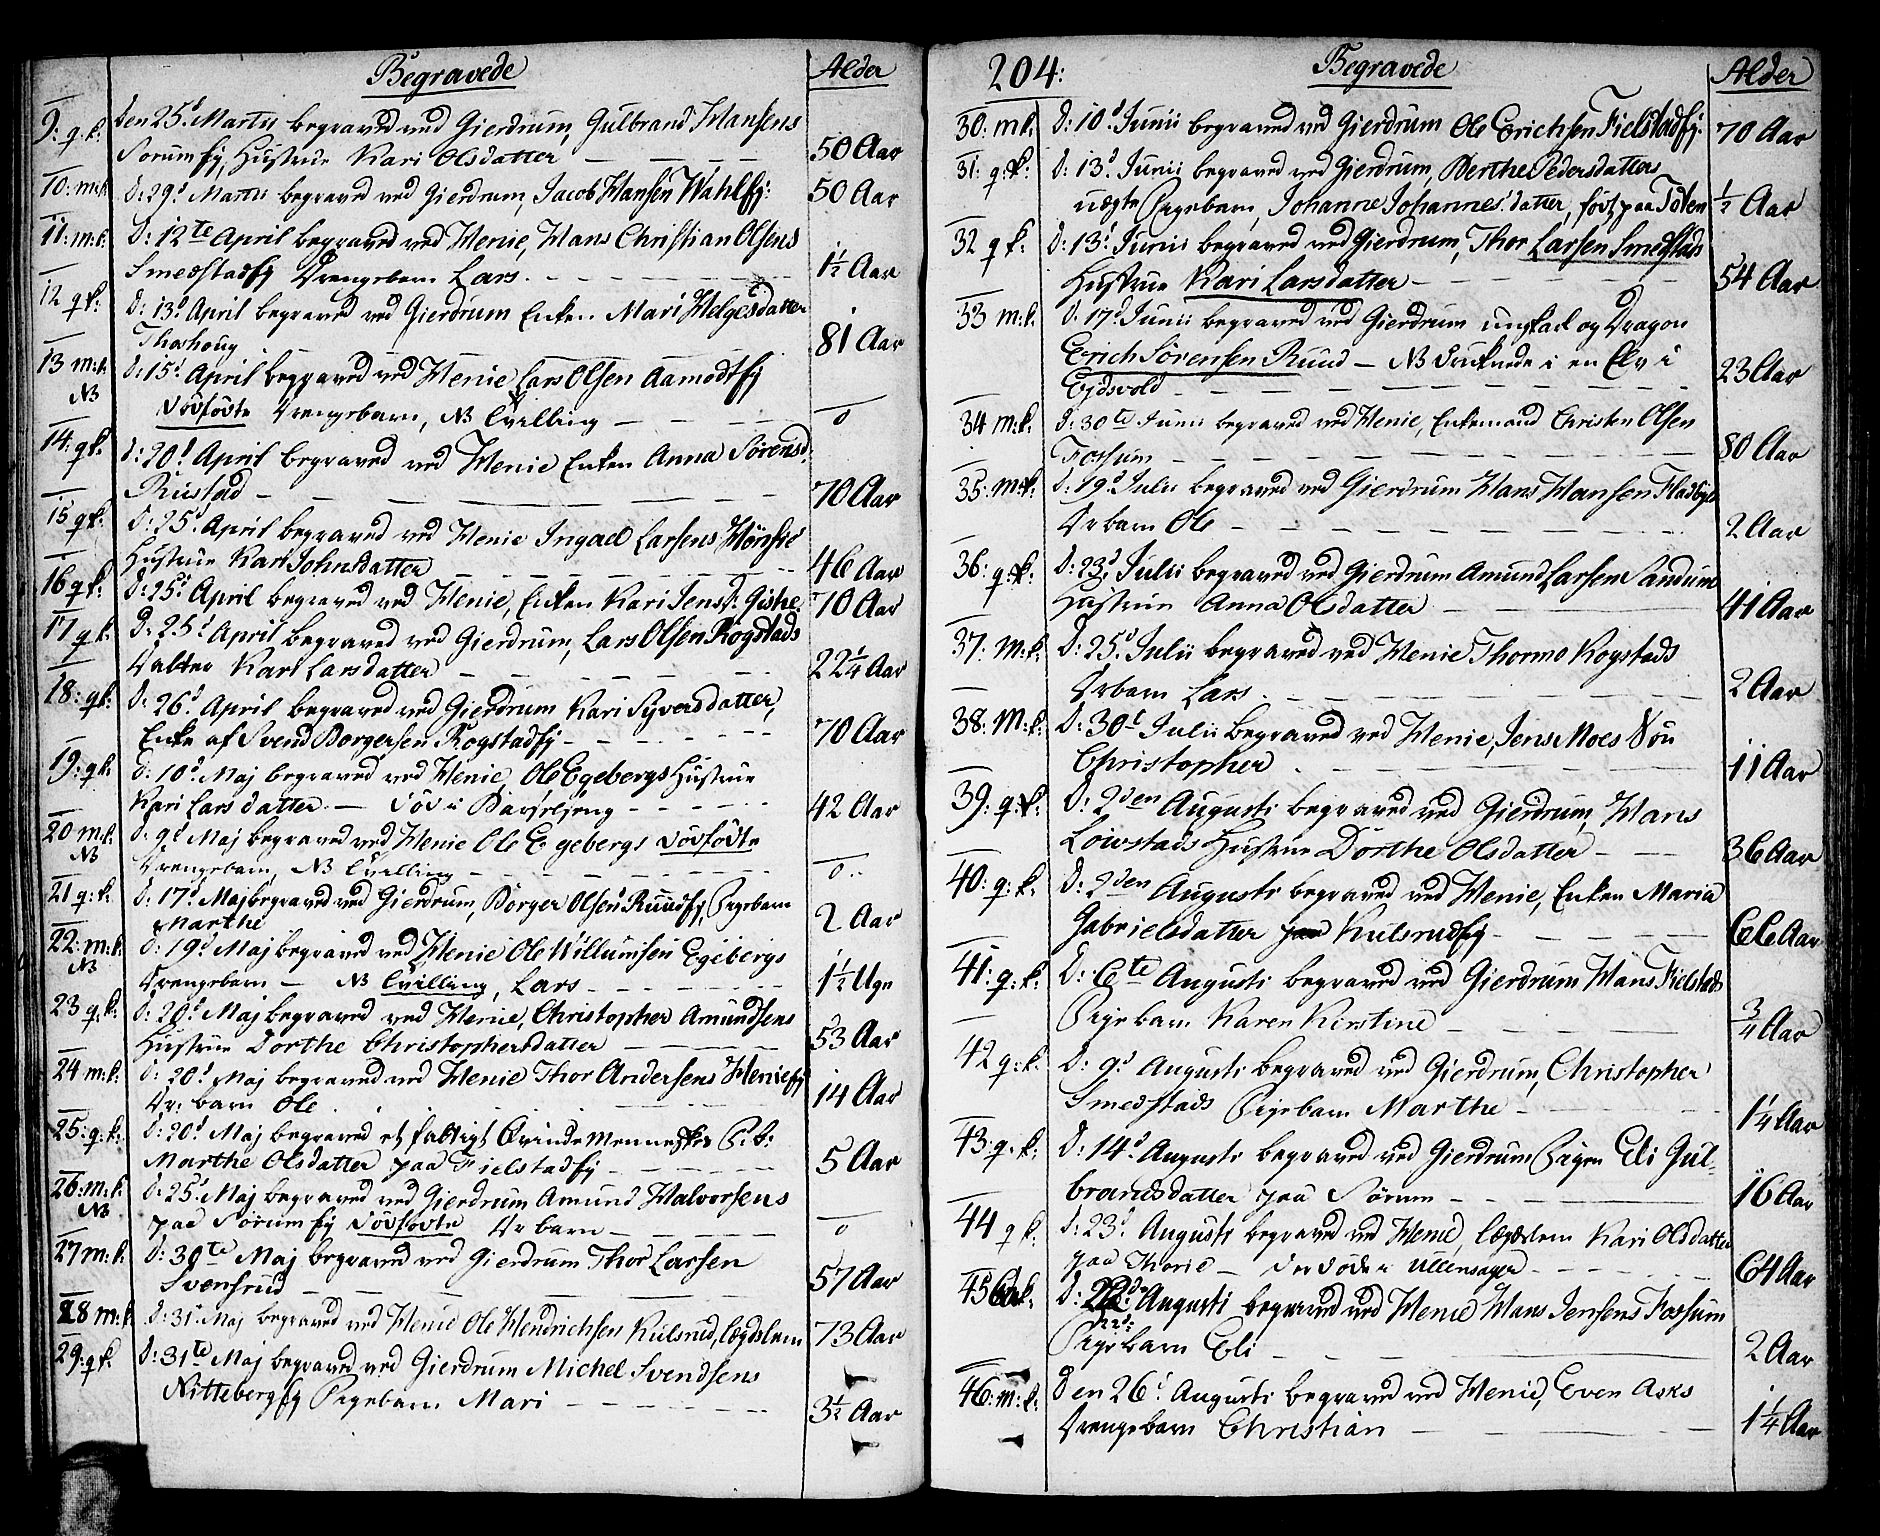 Begravede Alder
9: q.k. den 25d Martii begraved ved Gierdrum, Gulbrand Hansens
Sorum ej, Hustrue Kari Olsdatter 50 Aar
10: m:k. d: 29d Martii begraved ved Gierdrum, Jacob Hansen Wahl ej: 50 Aar
11: m.k. D: 12te April begraved ved Henie, Hans Christian Olsens
Smedstad ej Drengebarn Lars. 1½ Aar
12 q k. D: 13d April begraved ved Gierdrum Enken Mari Helgesdatter
81 Aar
13 m.k. D: 15d April begraved ved Henie Lars Olsen Aamodt ej
NB dödfödte Drengebarn, NB Tvilling o
14: q k. d: 20d April begraved ved Henie Enken Anna Sörensd.
Rustad 70 Aar
15 q k. D: 25d April begraved ved Henie Larsens
Hustrue Kari Johnsdatter 46 Aar
16 q k. D: 25d April begraved ved Henie, Enken Kari Jensd: 70 Aar
17 q k. D: 25d April begraved ved Gierdrum, Lars Olsen Rogstads
Datter Kari Larsdatter 22¼ Aar
18: qk. d: 26d April begraved ved Gierdrum Kari Syversdatter,
Enke af Svend Borgersen Rogstad ej 70 Aar
19: q k. d: 10d Maj begraved ved Henie, Ole Egebergs Hustrue
Kari Larsdatter. — död i Barselseng 42 Aar
20 m.k. d. 9d Maj begraved ved Henie Ole Egebergs dödfödte
NB Drengebarn, NB Tvilling o
21 q: k. d: 17d Maj begraved ved Gierdrum, Borger Olsen Ruud ej Pigebarn
Marthe 2 Aar
22: m.k. d: 19d Maj begraved ved Henie Ole Willumsen Egebergs
NB Drengebarn — NB Tvilling, Lars 1½ Uge
23 q: k. d: 20d Maj begraved ved Henie, Christopher Amundsens
Hustrue Dorthe Christophersdatter 53 Aar
24 m.k: d: 20d Maj begraved ved Henie Thor Andersens Henie ej
Dr: barn Ole 14 Aar
25: q: k. d: 20d Maj begraved et fattigt Qvindemenneskes P: b:
Marthe Olsdatter paa Fielstad ej 5 Aar
26: m.k. d: 25d Maj begraved ved Gierdrum Amund Halvorsens
NB paa Sörum ej dödfödte Dr barn o
27 m: k. D: 30te Maj begraved ved Gierdrum Thor Larsen
Svensrud 57 Aar
28 m: k. d: 31d Maj begraved ved Henie Ole Hendrichsen Kulsrud, lægdslem 73 Aar
29: q k. d: 31te Maj begraved ved Gierdrum Michel Svendsens
Nitteberg ej Pigebarn Mari 3½ Aar
204: Begravede Alder
30: m k. D: 10d Junii begraved ved Gierdrum Ole Erichsen Fielstad ej. 70 Aar
31: q: k. d: 13d Junii begraved ved Gierdrum, Berthe Pedersdatters
uægte Pigebarn, Johanne Johannes'datter, född paa Toten ½ Aar
32 q k. d: 13d Junii begraved ved Gierdrum, Thor Larsen Smedstads
Hustrue Kari Larsdatter 54 Aar
33 m: k. d: 17d Junii begraved ved Gierdrum ungkarl og Dragon
Erich Sörensen Ruud — NB druknede i en Elv i
Eydsvold 23 Aar
34 m: k. d: 30te Junii begraved ved Henie, Enkemand Christen Olsen
Fossum 80 Aar
35: m: k. D: 19d Julii begraved ved Gierdrum Hans Hansen Fladbye
Dr barn Ole 2 Aar
36: q: k. D: 23d Julii begraved ved Gierdrum Amund Larsen Sandum
Hustrue Anna Olsdatter 41 Aar
37: M: k. D: 25d Julii begraved ved Henie Thormo Rogstads
Dr barn Lars. 2 Aar
38: M: k. D: 30t Julii begraved ved Henie, Jens Moes Sön
Christopher 11 Aar
39: q: k. D: 2den Augusti begraved ved Gierdrum, Hans
Löwstads Hustrue Dorthe Olsdatter 36 Aar
40: q: k. D: 2den Augusti begraved ved Henie, Enken Maria
Gabrielsdatter paa Kulsrud ej 66 Aar
41: q: k. D: 6te Augusti begraved ved Gierdrum Hans Fielstads
Pigebarn Karen Kirstine ¾ Aar
42 q: k. D: 9d Augusti begraved ved Gierdrum, Christopher
Smedstads Pigebarn Marthe 1¼ Aar
43: q. k. D: 14d Augusti begraved ved Gierdrum Pigen Eli Gul-
brandsdatter paa Sörum 16 Aar
44 q k. D: 23d Augusti begraved ved Henie, lægdslem Kari Olsdatter
paa — der döde i Ullensager 64 Aar
45 k: D: 22d: Augusti begraved ved Henie Hans Jensens Fossum
22d:
Pigebarn Eli 2 Aar
46: m: k: Den 26d Augusti begraved ved Henie, Even Asks
Drengebarn Christian 1¼ Aar